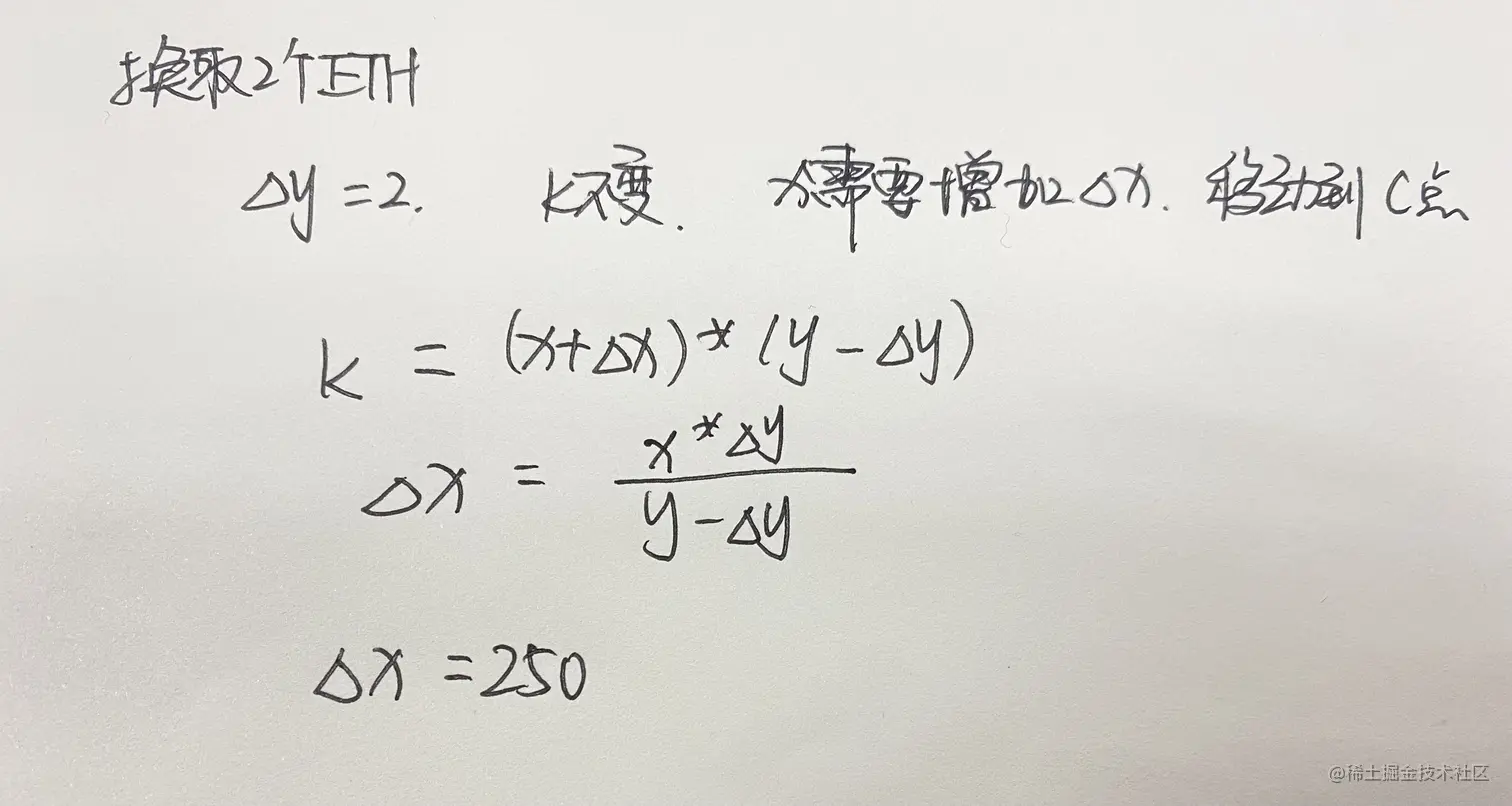 换取2个ETH
Δy = 2. k不变. x需要增加Δx. 移动到C点
k = (x+Δx) * (y - Δy)
Δx = \frac{x * Δy}{y - Δy}
Δx = 250
@稀土掘金技术社区